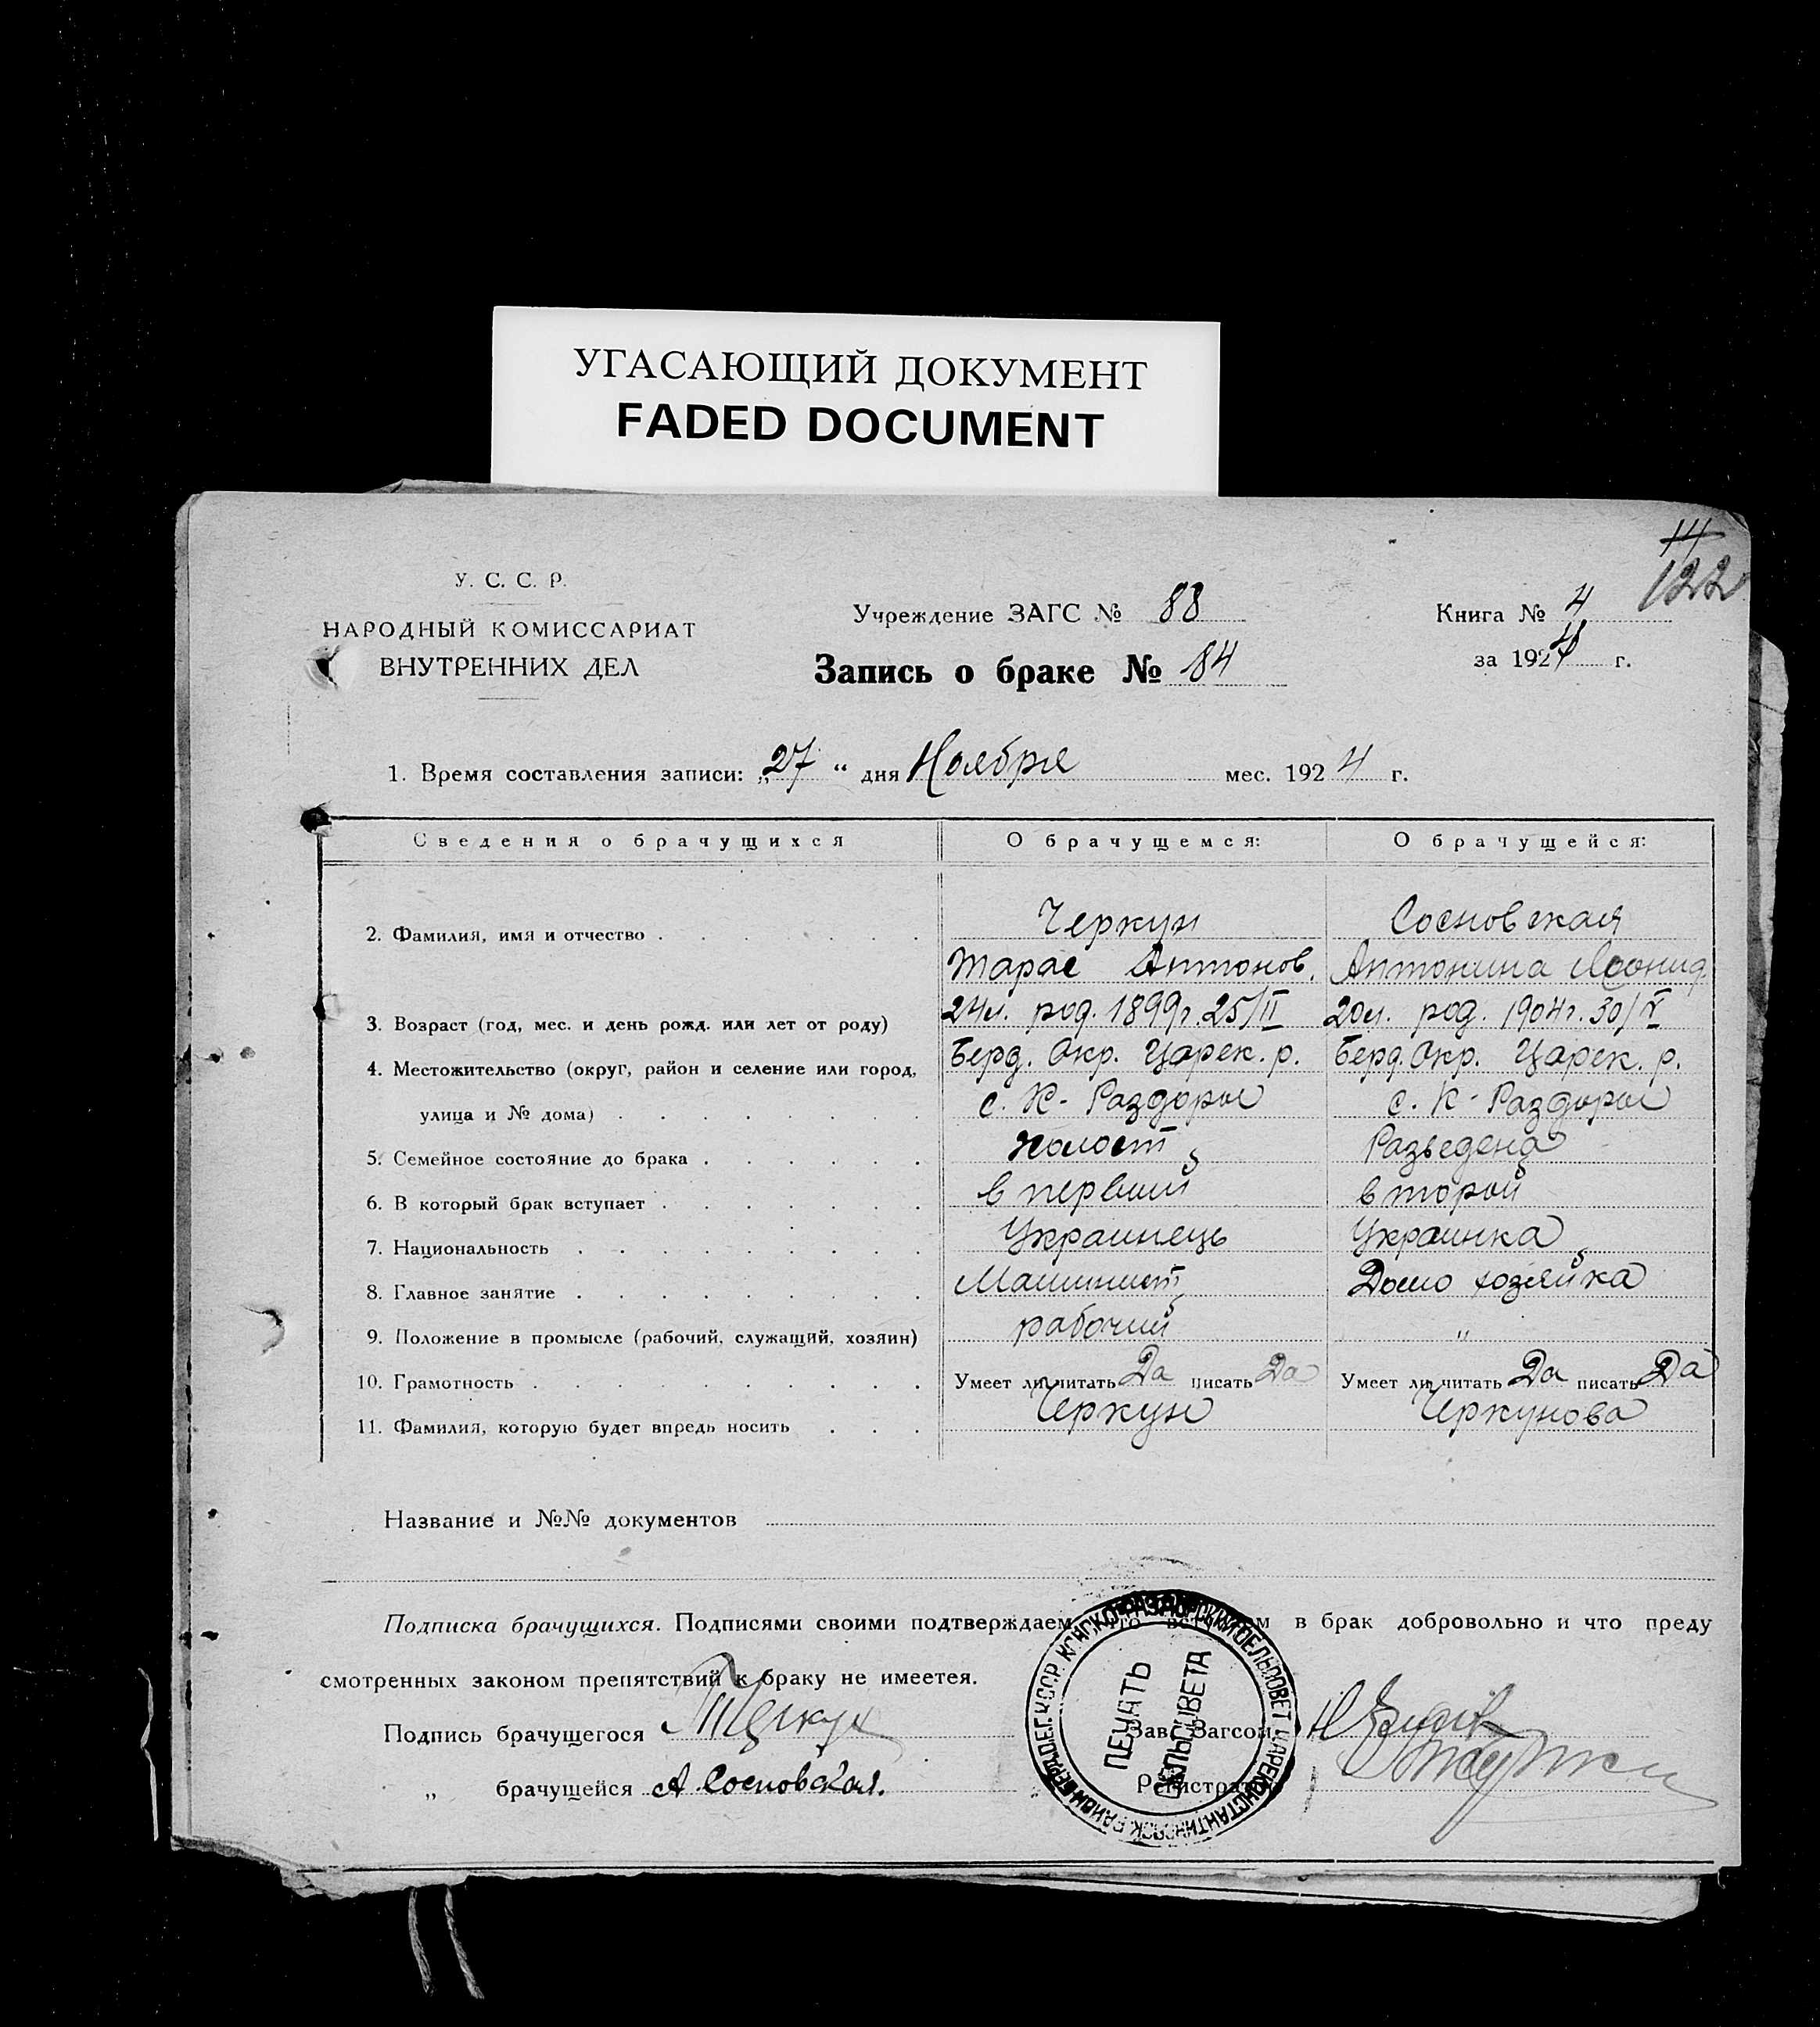 УГАСАЮЩИЙ ДОКУМЕНТ
FADED DOCUMENT
14
122
У. С. С. Р.
НАРОДНЫЙ КОМИССАРИАТ
ВНУТРЕННИХ ДЕЛ
Учреждение ЗАГС № 88
Запись о браке № 184
Книга № 4
за 1924 г.
1. Время составления записи: „27“ дня Ноября мес. 1924 г.
Сведения о брачущихся О брачущемся: О брачущейся:
2. Фамилия, имя и отчество Черкун Сосновская
Тарас Антонов. Антонина Леонид.
3. Возраст (год, мес. и день рожд. или лет от роду) 24л. род. 1899г. 25/II 20л. род. 1904г. 30/V
4. Местожительство (округ, район и селение или город, Берд. Окр. Царек. р. Берд. Окр. Царек. р.
улица и № дома) с. К-Раздоры с. К-Раздоры
5. Семейное состояние до брака Холост Разведена
6. В который брак вступает в первий второй
7. Национальность Украинець Украинка
8. Главное занятие Машинист Домо хозяйка
9. Положение в промысле (рабочий, служащий, хозяин) рабочий "
10. Грамотность Умеет ли читать Да писать Да Умеет ли читать Да писать Да
11. Фамилия, которую будет впредь носить Черкун Черкунова
Название и №№ документов
Подписка брачущихся. Подписями своими подтверждаем что вступаем в брак добровольно и что преду
смотренных законом препятствий к браку не имеетея.
Подпись брачущегося ТЧеркун
Зав. Загсом
„ брачущейся А Сосновская.
Регистратор
ПЕЧАТЬ
СЕЛЬСОВЕТА
КОНСКО-РАЗДОРСКИЙ СЕЛЬСОВЕТ ЦАРЕКОНСТАНТИНОВСК РАЙОН